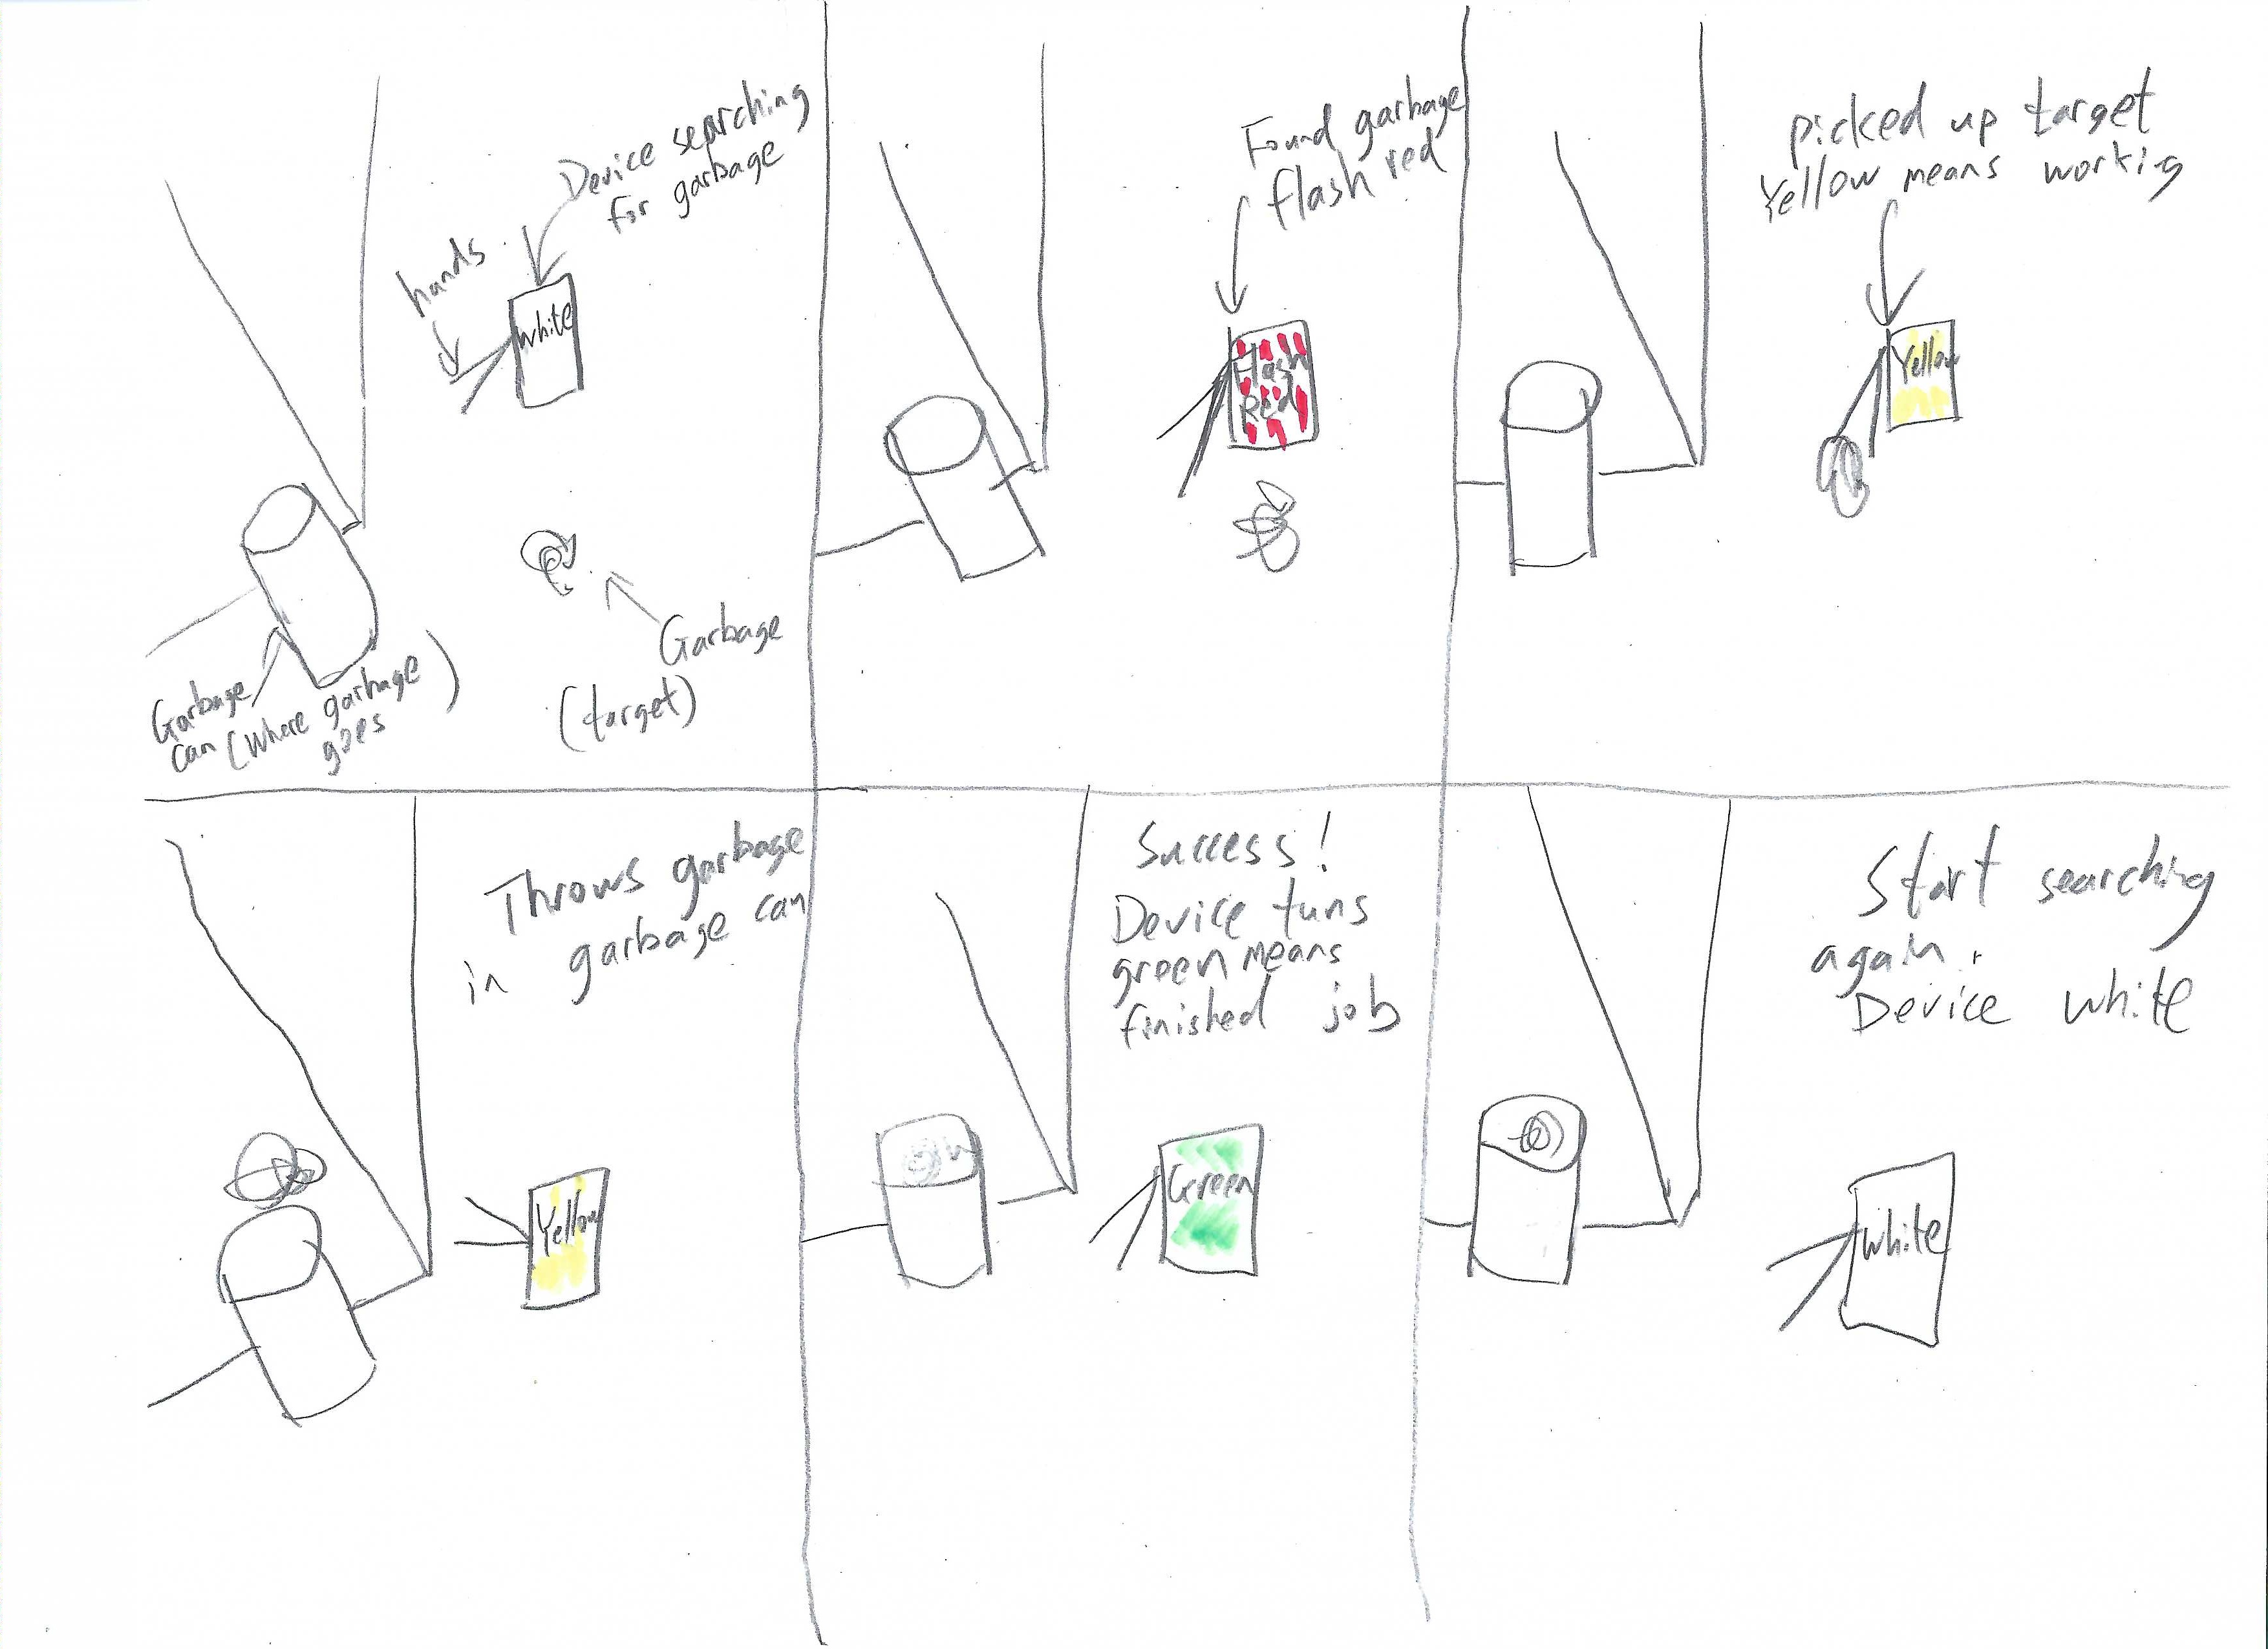 Device searching
for garbage
hands
white
Garbage
(target)
Garbage
can (Where garbage
goes)
Found garbage
flash red
Flash
Red
picked up target
Yellow means working
Yellow
Throws garbage
in garbage can
Yellow
Success!
Device tuns
green means
finished job
Green
Start searching
again.
Device white
white